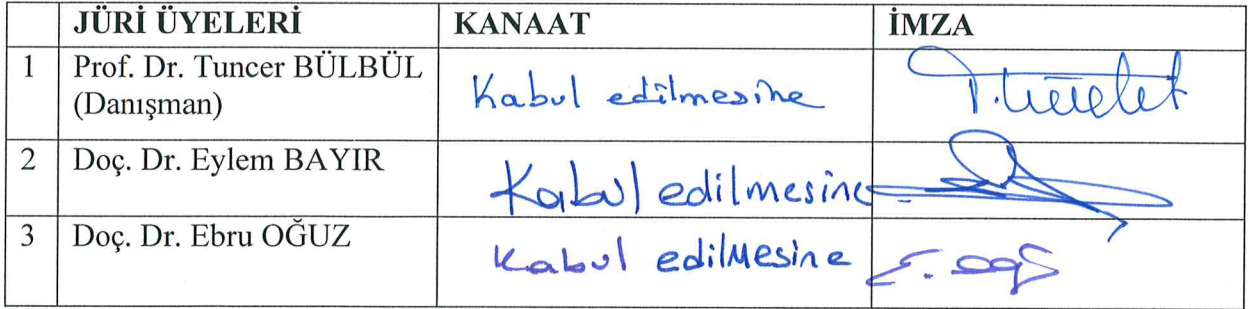 JÜRİ ÜYELERİ KANAAT İMZA
1 Prof. Dr. Tuncer BÜLBÜL Kabul edilmesine
(Danışman)
2 Doç. Dr. Eylem BAYIR Kabul edilmesine
3 Doç. Dr. Ebru OĞUZ Kabul edilmesine